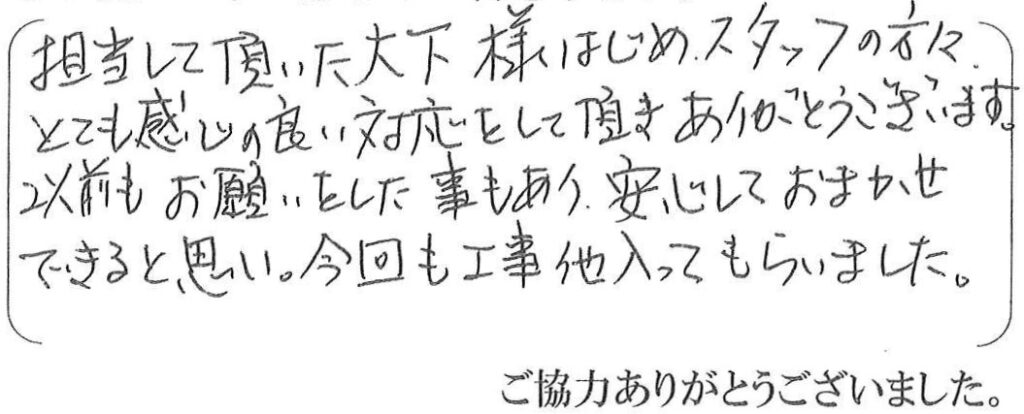 担当して頂いた大下様はじめ、スタッフの方々、
とても感じの良い対応をして頂きありがとうございます。
以前もお願いをした事もあり、安心しておまかせ
できると思い。今回も工事他入ってもらいました。
ご協力ありがとうございました。